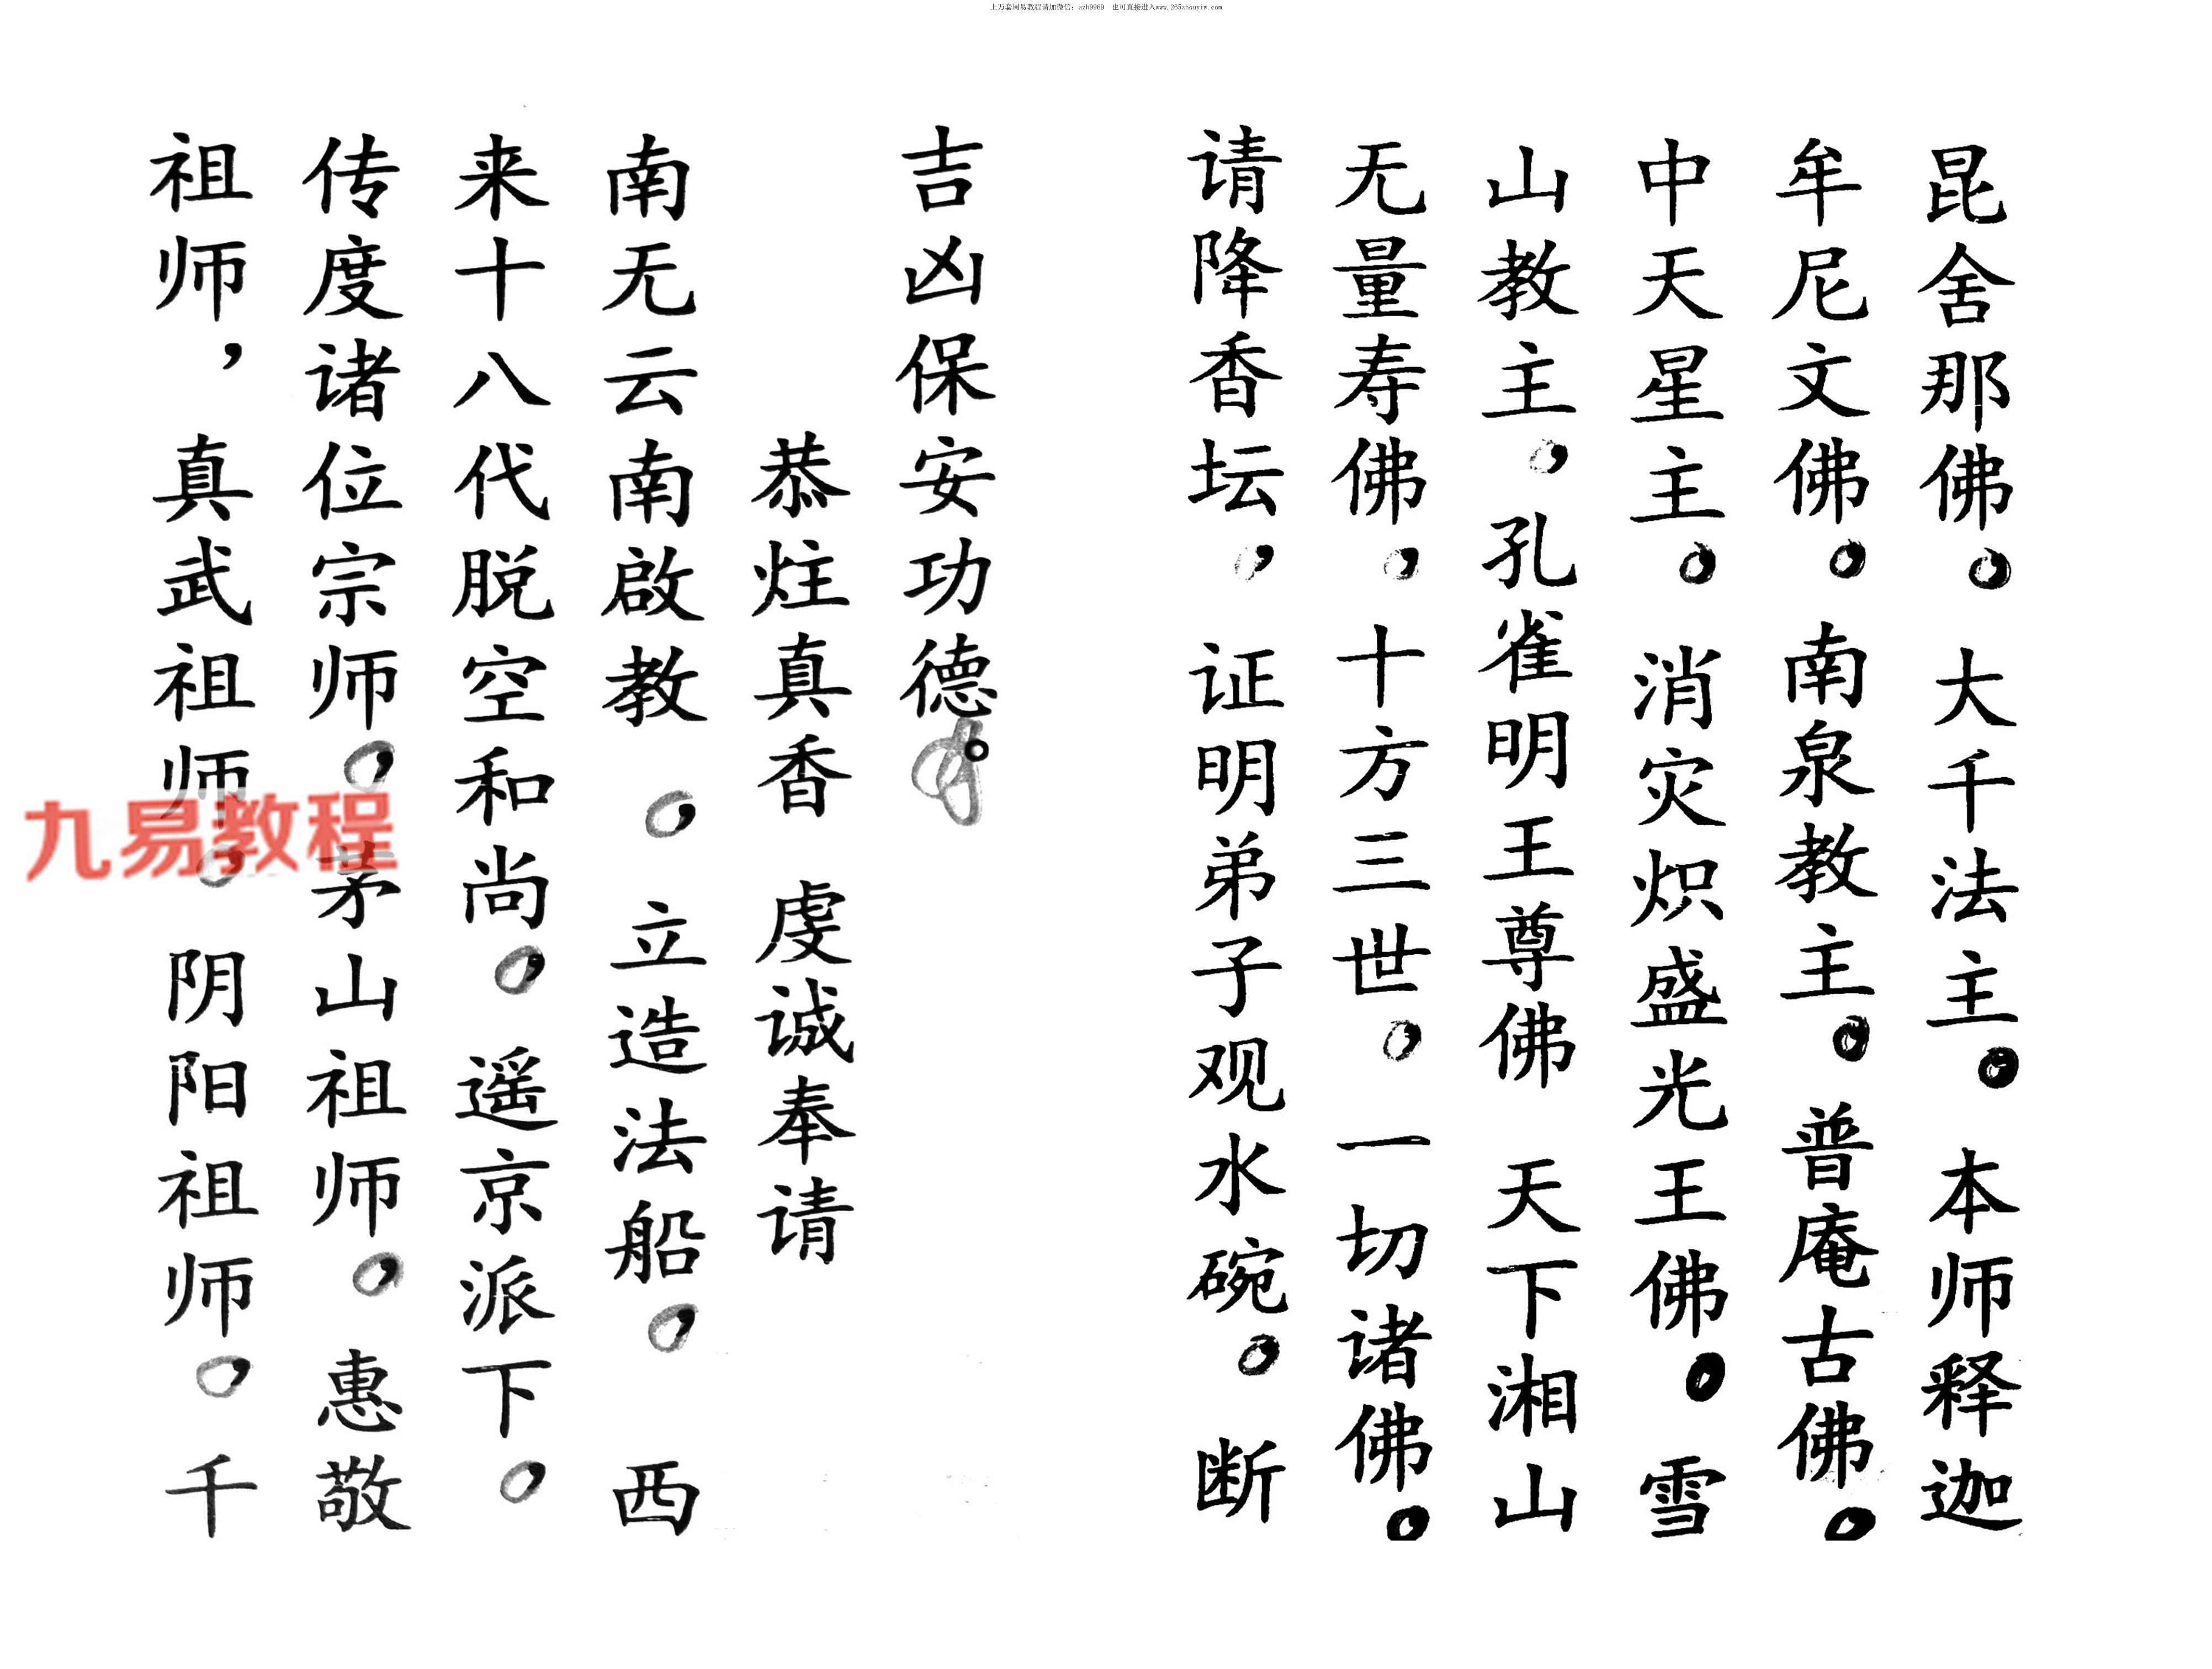 上万套周易教程请加微信：azh9969 也可直接进入www.265zhouyiw.com
昆舍那佛。大千法主。本师释迦
牟尼文佛。南泉教主。普庵古佛。
中天星主。消灾炽盛光王佛。雪
山教主，孔雀明王尊佛 天下湘山
无量寿佛。十方三世。一切诸佛。
请降香坛，证明弟子观水碗。断
吉凶保安功德。
恭炷真香 虔诚奉请
南无云南啟教。立造法船。西
来十八代脱空和尚。遥京派下。
传度诸位宗师。茅山祖师。惠敬
祖师，真武祖师。阴阳祖师。千
九易教程